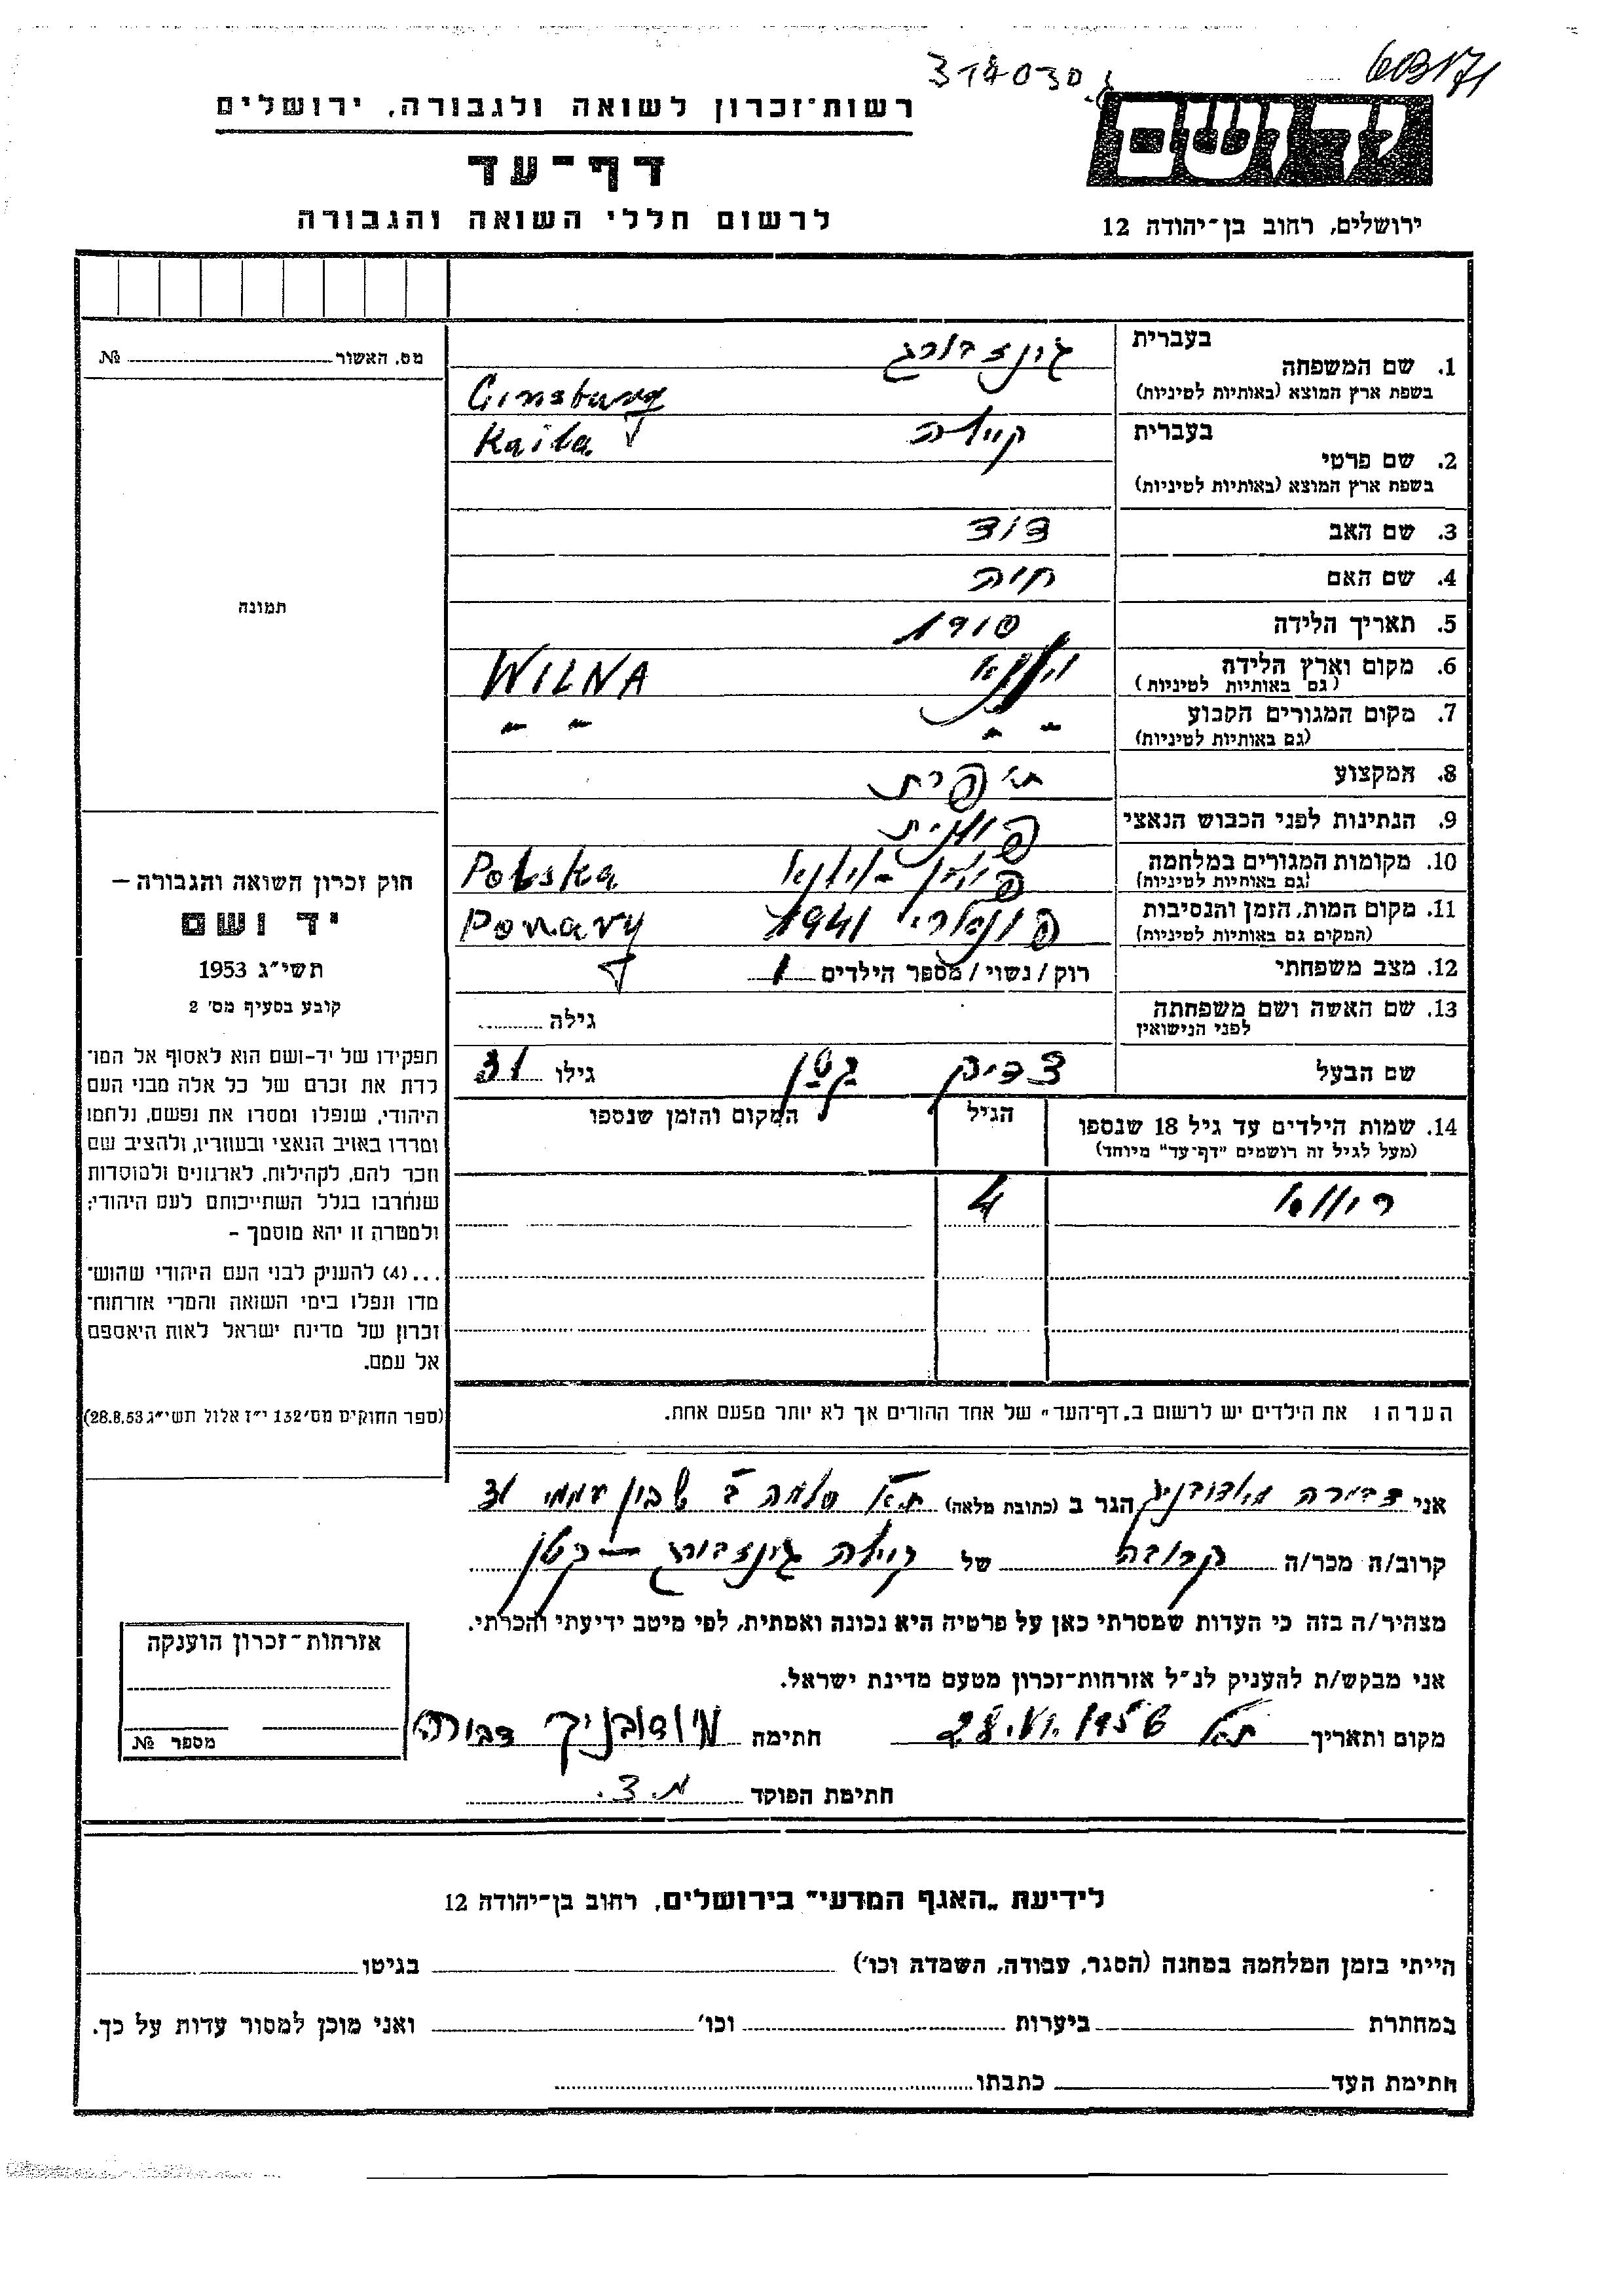 314030
603171
רשות־זכרון לשואה ולגבורה, ירושלים
דף־עד
לרשום חללי השואה והגבורה
יד ושם
ירושלים, רחוב בן־יהודה 12
מס. האשור № 
תמונה
חוק זכרון השואה והגבורה –
יד ושם
תשי"ג 1953
קובע בסעיף מס' 2
תפקידו של יד-ושם הוא לאסוף אל המו־
לדת את זכרם של כל אלה מבני העם
היהודי, שנפלו ומסרו את נפשם, נלחמו
ומרדו באויב הנאצי ובעוזריו, ולהציב שם
וזכר להם, לקהילות, לארגונים ולמוסדות
שנחרבו בגלל השתייכותם לעם היהודי;
ולמטרה זו יהא מוסמך –
...(4) להעניק לבני העם היהודי שהוש־
מדו ונפלו בימי השואה והמרי אזרחות־
זכרון של מדינת ישראל לאות היאספם
אל עמם.
(ספר החוקים מס' 132 י"ז אלול תשי"ג 28.8.53)
בעברית
1. שם המשפחה גינזבורג
בשפת ארץ המוצא (באותיות לטיניות) Ginsburg
בעברית
2. שם פרטי קיילה
בשפת ארץ המוצא (באותיות לטיניות) Kaila
3. שם האב דוד
4. שם האם חיה
5. תאריך הלידה 1910
6. מקום וארץ הלידה וילנא WILNA
(גם באותיות לטיניות)
7. מקום המגורים הקבוע - - - -
(גם באותיות לטיניות)
8. המקצוע תופרת
9. הנתינות לפני הכבוש הנאצי פולנית
10. מקומות המגורים במלחמה פולין - וילנא Polska
(גם באותיות לטיניות)
11. מקום המות, הזמן והנסיבות פונארי 1941 Ponary
(המקום גם באותיות לטיניות)
12. מצב משפחתי רוק / נשוי / מספר הילדים 1
13. שם האשה ושם משפחתה לפני הנישואין גילה
שם הבעל צדיק קטן גילו 31
14. שמות הילדים עד גיל 18 שנספו הגיל המקום והזמן שנספו
(מעל לגיל זה רושמים "דף־עד" מיוחד)
ריווא 4
הערה: את הילדים יש לרשום ב„דף־העד" של אחד ההורים אך לא יותר מפעם אחת.
אני דבורה הגר ב (כתובת מלאה) ת"א סלמה ב' שכון עממי 31
קרוב/ה מכר/ה קרובה של קיילה גינזבורג – קטן
מצהיר/ה בזה כי העדות שמסרתי כאן על פרטיה היא נכונה ואמתית, לפי מיטב ידיעתי והכרתי.
אני מבקש/ת להעניק לנ"ל אזרחות־זכרון מטעם מדינת ישראל.
מקום ותאריך ת"א 28.VI.1956 חתימה דבורה
חתימת הפוקד מ.צ.
אזרחות־זכרון הוענקה
מספר №
לידיעת „האגף המדעי" בירושלים, רחוב בן־יהודה 12
הייתי בזמן המלחמה במחנה (הסגר, עבודה, השמדה וכו') בגיטו
במחתרת ביערות וכו' ואני מוכן למסור עדות על כך.
חתימת העד כתבתו